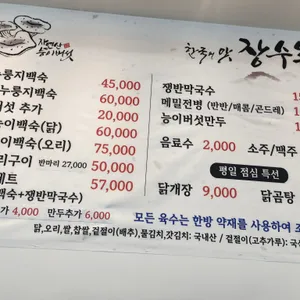 자연산
능이버섯
한국의 맛 장수
누룽지백숙 45,000
누룽지백숙 60,000
버섯 추가 20,000
능이백숙(닭) 60,000
능이백숙(오리) 75,000
리구이 반마리 27,000 50,000
세트 57,000
백숙+쟁반막국수)
가 4,000 만두추가 6,000
쟁반막국수
메밀전병 (반반/매콤/곤드레)
능이버섯만두
음료수 2,000 소주/맥주
평일 점심 특선
닭개장 9,000 닭곰탕
모든 육수는 한방 약재를 사용하여 조
닭,오리,쌀,찹쌀,겉절이(배추),물김치,갓김치: 국내산 / 겉절이(고추가루): 국